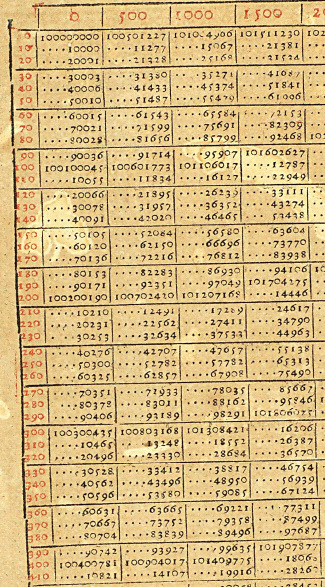 0 500 1000 1500 20
0 100000000 100501227 101004966 101511230 102
10 ····10000 ····11277 ····15067 ····21381
20 ····20001 ····21328 ····25168 ····31534
30 ····30003 ····31380 ····35271 ····41687
40 ····40006 ····41433 ····45374 ····51841
50 ····50010 ····51487 ····55479 ····61996
60 ····60015 ····61543 ····65584 ····72153
70 ····70021 ····71599 ····75691 ····82309
80 ····80028 ····81656 ····85799 ····92468 10
90 ····90036 ····91714 ····95907 101602627
100 100100045 100601773 101106017 ····12787
110 ····10055 ····11834 ····16127 ····22949
120 ····20066 ····21895 ····26239 ····33111
130 ····30078 ····31957 ····36352 ····43274
140 ····40091 ····42020 ····46465 ····53438
150 ····50105 ····52084 ····56580 ····63604
160 ····60120 ····62150 ····66696 ····73770
170 ····70136 ····72216 ····76812 ····83938
180 ····80153 ····82283 ····86930 ····94106 10
190 ····90171 ····92351 ····97049 101704275
200 100200190 100702420 101207168 ····14446
210 ····10210 ····12491 ····17289 ····24617
220 ····20231 ····22562 ····27411 ····34790
230 ····30253 ····32634 ····37533 ····44963
240 ····40276 ····42707 ····47657 ····55138
250 ····50300 ····52782 ····57782 ····65313
260 ····60325 ····62857 ····67908 ····75490
270 ····70351 ····72933 ····78035 ····85667
280 ····80378 ····83011 ····88162 ····95846
290 ····90406 ····93189 ····98291 101806025
300 100300435 100803168 101308421 ····16206
310 ····10465 ····13248 ····18552 ····26387
320 ····20496 ····23330 ····28684 ····36570
330 ····30528 ····33412 ····38817 ····46754
340 ····40562 ····43496 ····48950 ····56939
350 ····50596 ····53580 ····59085 ····67124
360 ····60631 ····63665 ····69221 ····77311
370 ····70667 ····73752 ····79358 ····87499
380 ····80704 ····83839 ····89496 ····97687
390 ····90742 ····93927 ····99635 101907877
400 100400781 100904017 101409775 ····18068
410 ····10821 ····14107 ····19916 ····28267